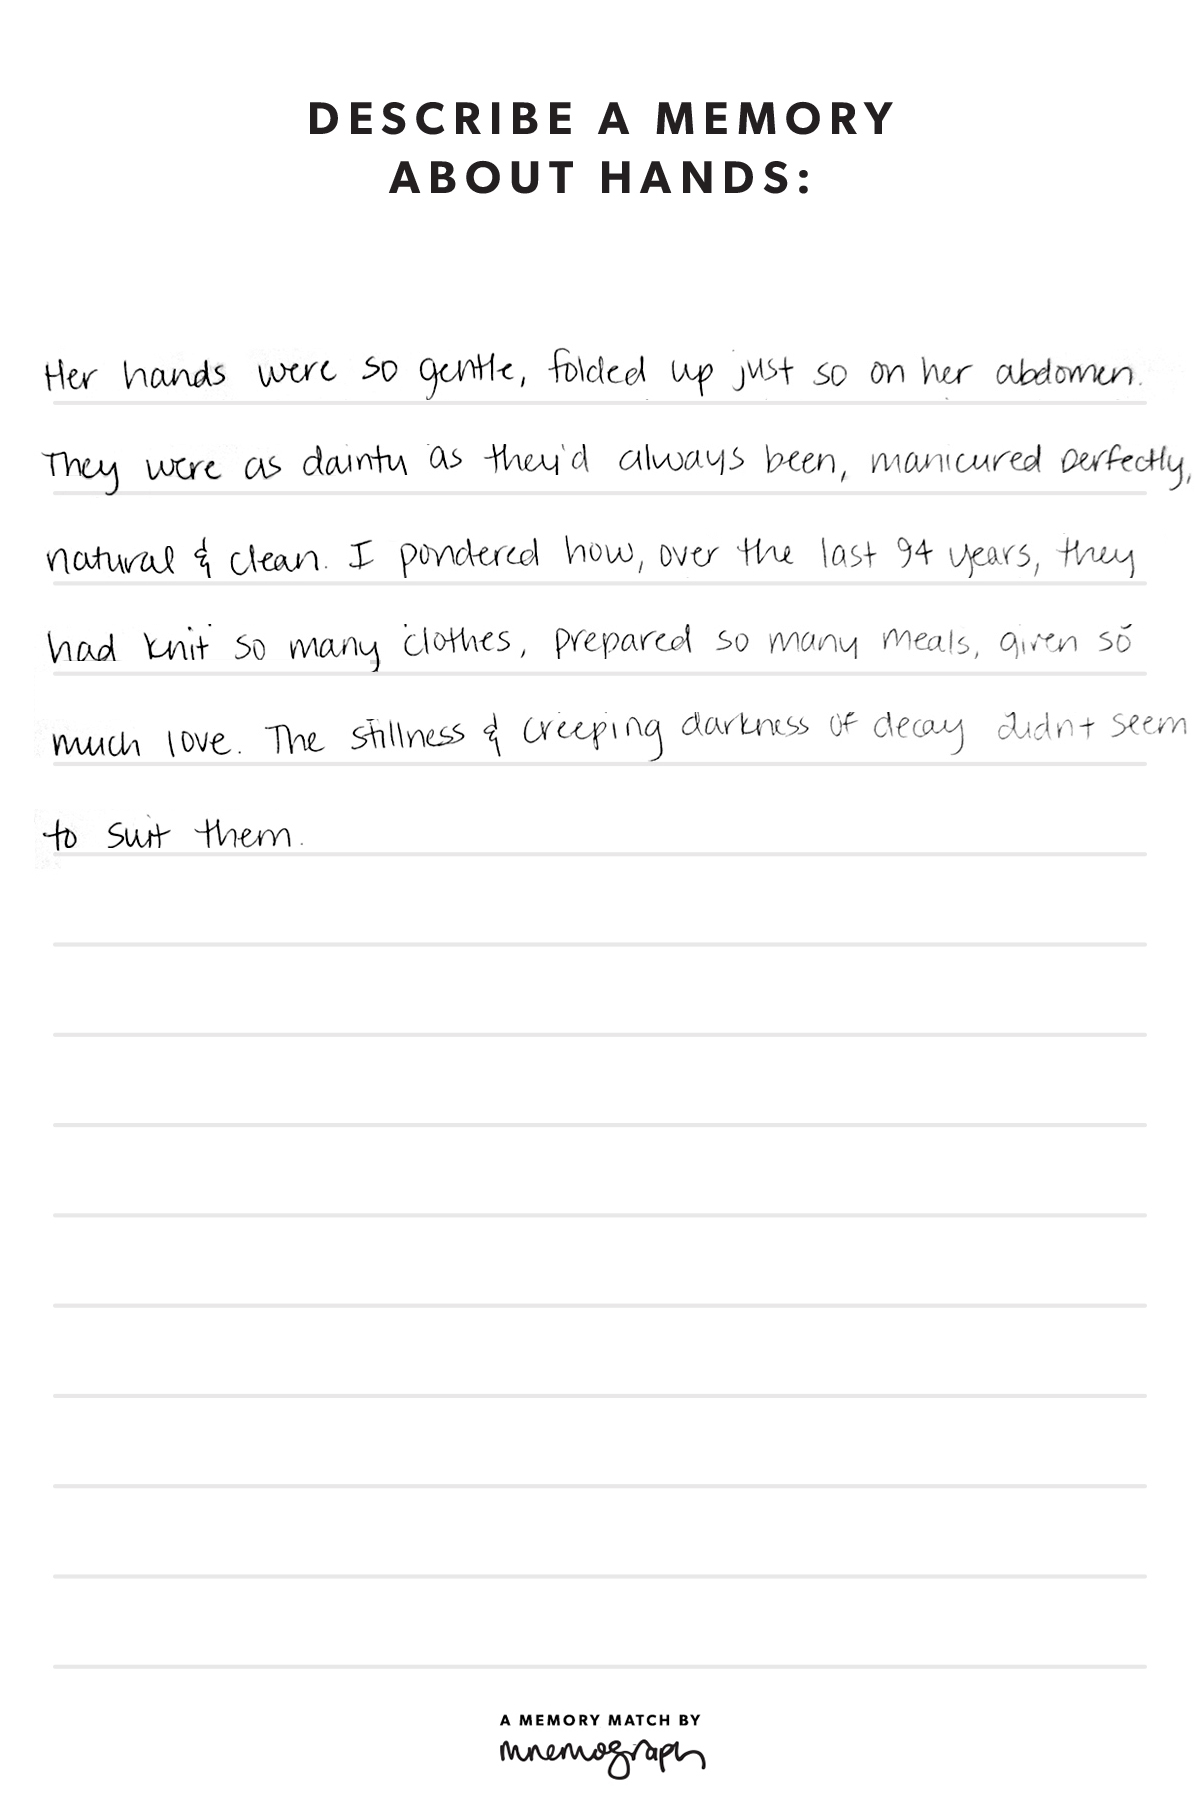 DESCRIBE A MEMORY
ABOUT HANDS:
Her hands were so gentle, folded up just so on her abdomen.
They were as dainty as they'd always been, manicured perfectly,
natural & clean. I pondered how, over the last 94 years, they
had knit so many clothes, prepared so many meals, given so
much love. The stillness & creeping darkness of decay didn't seem
to suit them.
A MEMORY MATCH BY
mnemograph